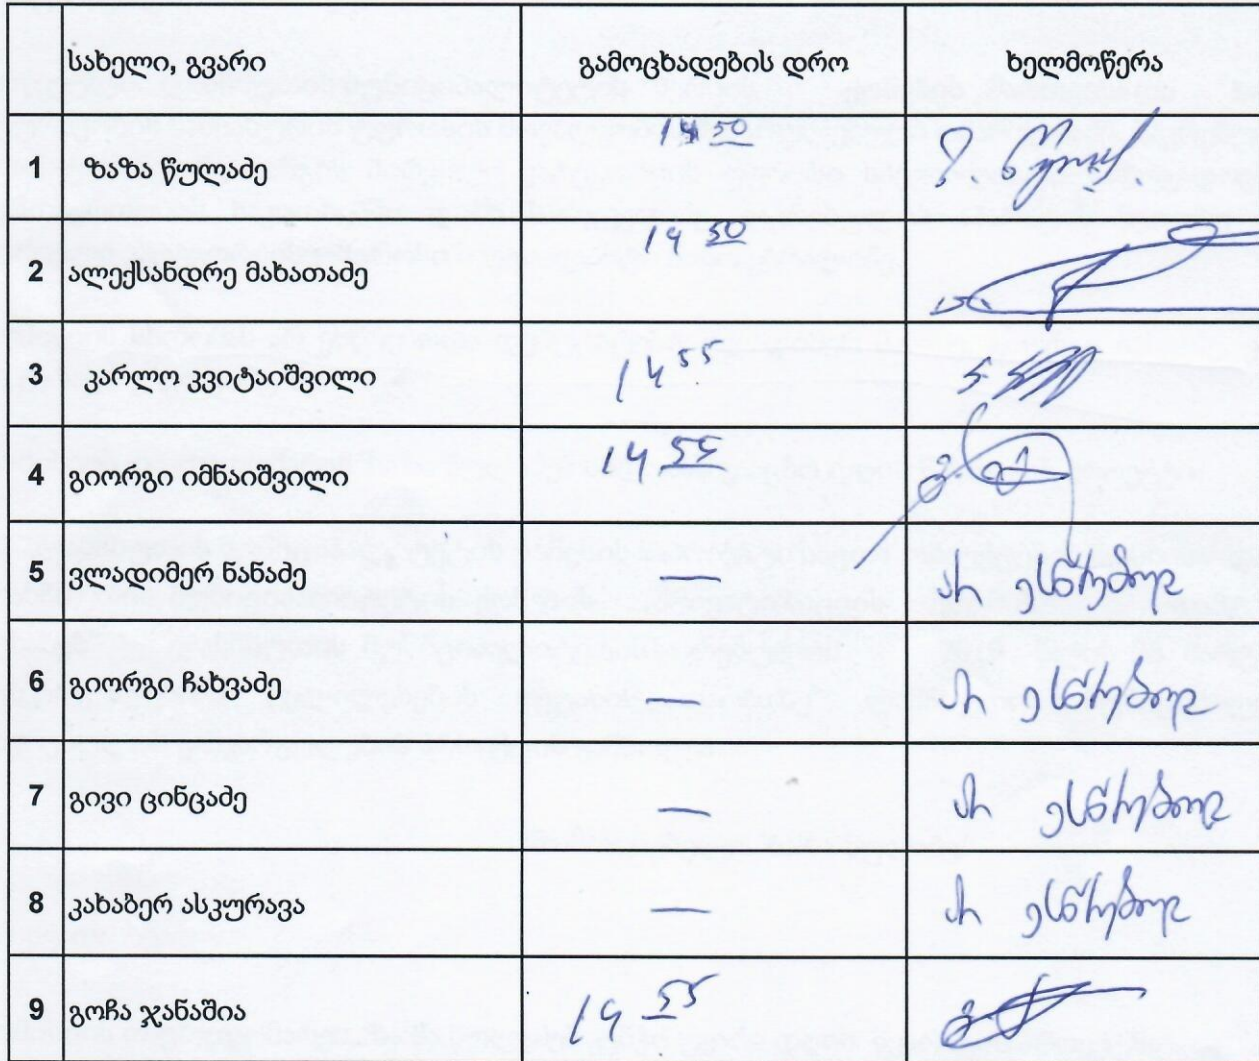 სახელი, გვარი გამოცხადების დრო ხელმოწერა
1 ზაზა წულაძე 14 50
2 ალექსანდრე მახათაძე 14 50
3 კარლო კვიტაიშვილი 14 55
4 გიორგი იმნაიშვილი 14 55
5 ვლადიმერ ნანაძე — არ ესწრებოდა
6 გიორგი ჩახვაძე — არ ესწრებოდა
7 გივი ცინცაძე — არ ესწრებოდა
8 კახაბერ ასკურავა — არ ესწრებოდა
9 გოჩა ჯანაშია 14 55